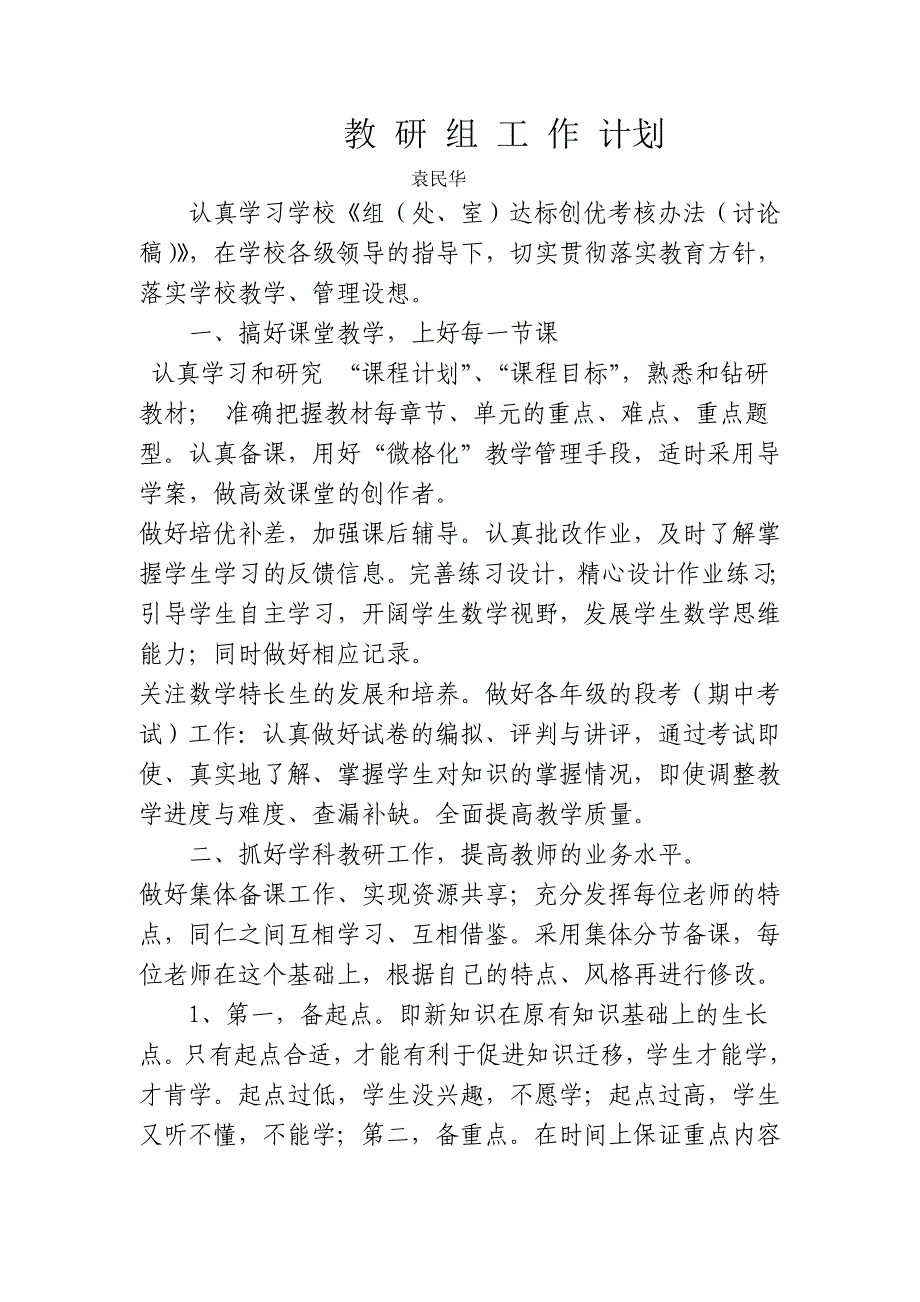 教 研 组 工 作 计划
袁民华
认真学习学校《组（处、室）达标创优考核办法（讨论
稿）》，在学校各级领导的指导下，切实贯彻落实教育方针，
落实学校教学、管理设想。
一、搞好课堂教学，上好每一节课
认真学习和研究 “课程计划”、“课程目标”，熟悉和钻研
教材； 准确把握教材每章节、单元的重点、难点、重点题
型。认真备课，用好“微格化”教学管理手段，适时采用导
学案，做高效课堂的创作者。
做好培优补差，加强课后辅导。认真批改作业，及时了解掌
握学生学习的反馈信息。完善练习设计，精心设计作业练习；
引导学生自主学习，开阔学生数学视野，发展学生数学思维
能力；同时做好相应记录。
关注数学特长生的发展和培养。做好各年级的段考（期中考
试）工作：认真做好试卷的编拟、评判与讲评，通过考试即
使、真实地了解、掌握学生对知识的掌握情况，即使调整教
学进度与难度、查漏补缺。全面提高教学质量。
二、抓好学科教研工作，提高教师的业务水平。
做好集体备课工作、实现资源共享；充分发挥每位老师的特
点，同仁之间互相学习、互相借鉴。采用集体分节备课，每
位老师在这个基础上，根据自己的特点、风格再进行修改。
1、第一，备起点。即新知识在原有知识基础上的生长
点。只有起点合适，才能有利于促进知识迁移，学生才能学，
才肯学。起点过低，学生没兴趣，不愿学；起点过高，学生
又听不懂，不能学；第二，备重点。在时间上保证重点内容